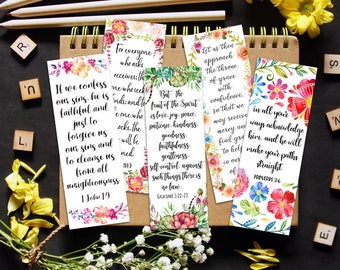 If we confess
our sins, he is
faithful and
just to
forgive us
our sins and
to cleanse us
from all
unrighteousness.
1 John 1:9
For everyone
who asks
receives;
But the
Fruit of the Spirit
is love, joy, peace,
patience, kindness,
goodness,
faithfulness,
gentleness,
self-control; against
such things there is
no law.
Galatians 5:22-23
Let us then
approach
the throne
of grace
with
confidence,
so that we
may receive
mercy and
find grace
to help
in
in all your
ways acknowledge
him, and he
will make
your paths
straight
Proverbs 3:6
R
L
N
E
S